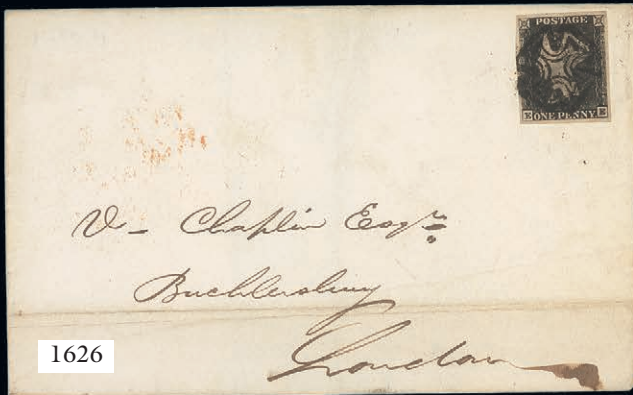 POSTAGE
E ONE PENNY E
V - Chaplin Esqr.
Bucklersbury
London
1626